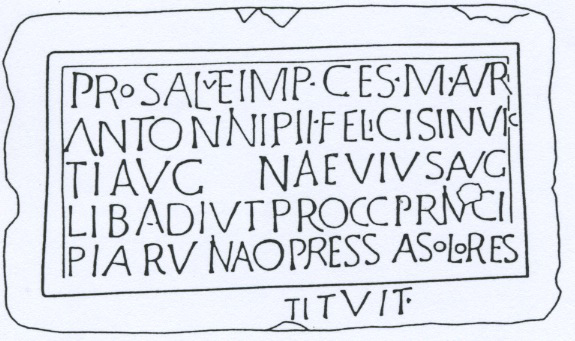 PRO SALVE IMP· CES· M· AVR
ANTONNINI PII· FELICIS INVIC
TI AVG NAEVIVS AVG
LIB ADIVT PROCC PRINCI
PIA RVNA OPRESS A SOLO RES
TITVIT·